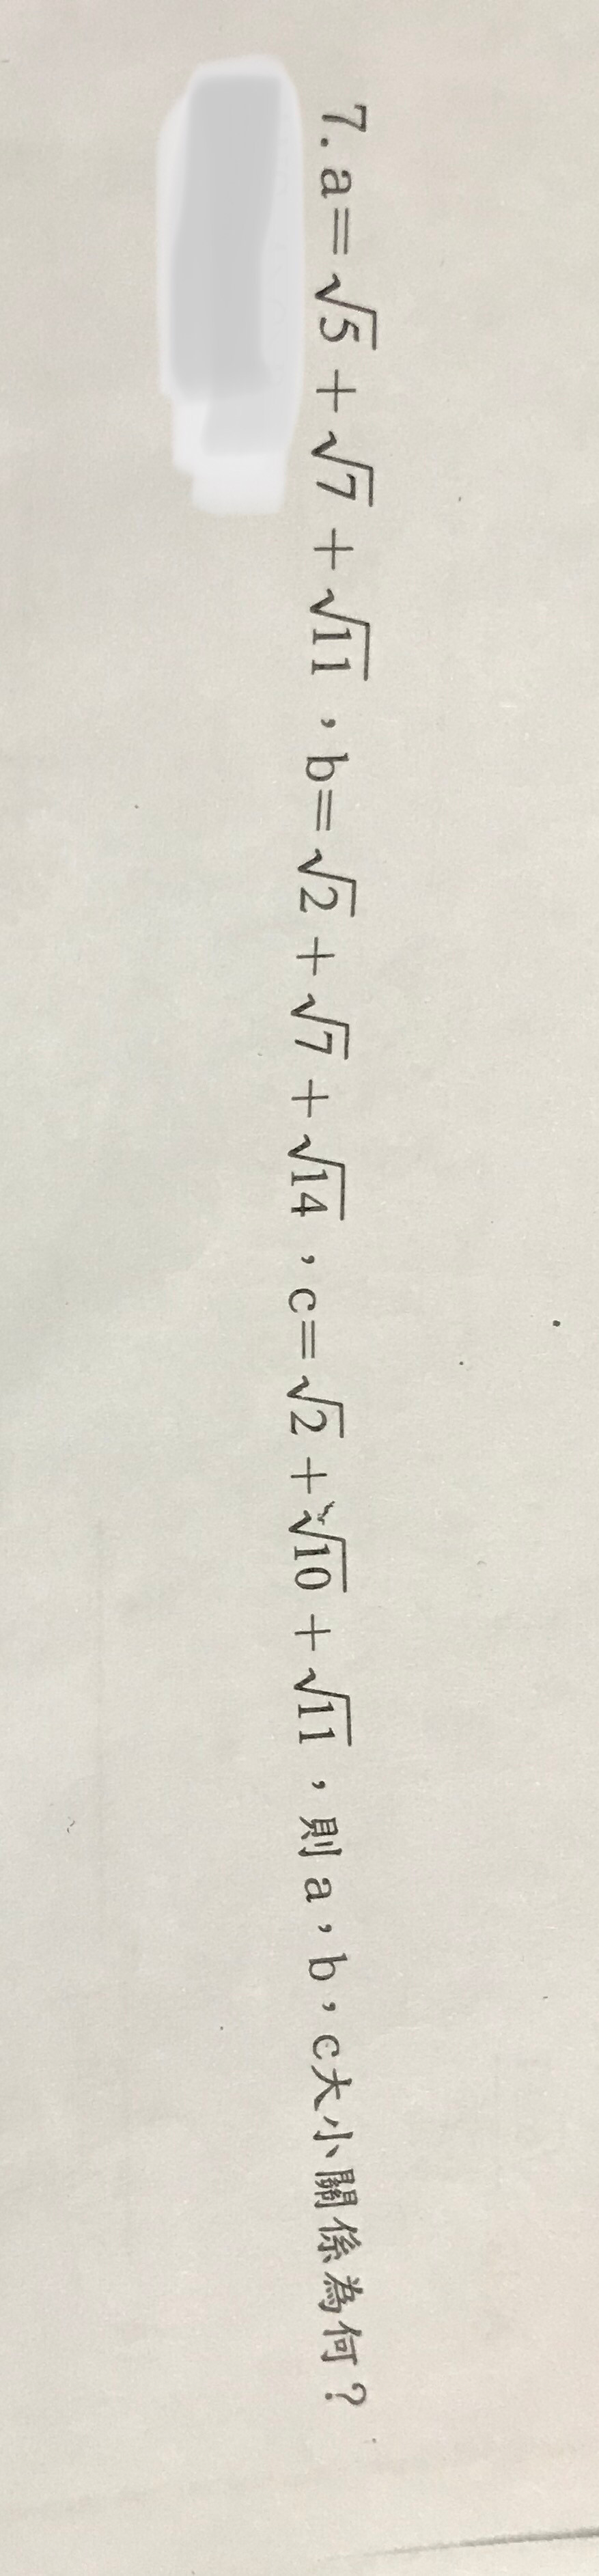 7. a=√5+√7+√11，b=√2+√7+√14，c=√2+√10+√11，則a，b，c大小關係為何？